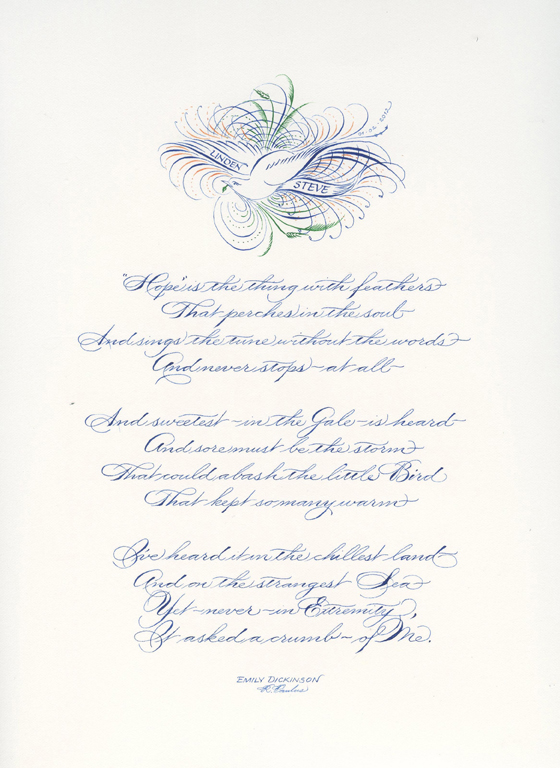 LINDEN
STEVE
"Hope" is the thing with feathers
That perches in the soul
And sings the tune without the words
And never stops - at all -
And sweetest - in the Gale - is heard
And sore must be the storm
That could abash the little Bird
That kept so many warm
I've heard it in the chillest land
And on the strangest Sea
Yet - never - in Extremity,
It asked a crumb - of Me.
EMILY DICKINSON